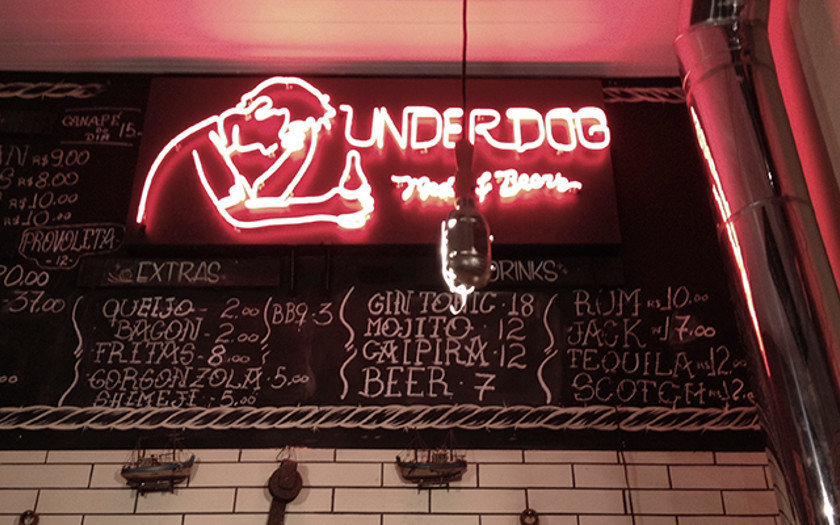 UNDERDOG
of Beers
CANAPÉ
DO
DIA 15.
R$9.00
R$8.00
R$10.00
R$10.00
PROVOLETA
-12-
37.00
EXTRAS
QUEIJO - 2.00
BACON - 2.00
FRITAS - 8.00
GORGONZOLA . 5.00
SHIMEJI - 5.00
BBQ. 3
DRINKS
GIN TONIC · 18
MOJITO · 12
CAIPIRA · 12
BEER · 7
RUM R$10.00
JACK R$17.00
TEQUILA R$12.00
SCOTCH R$12.